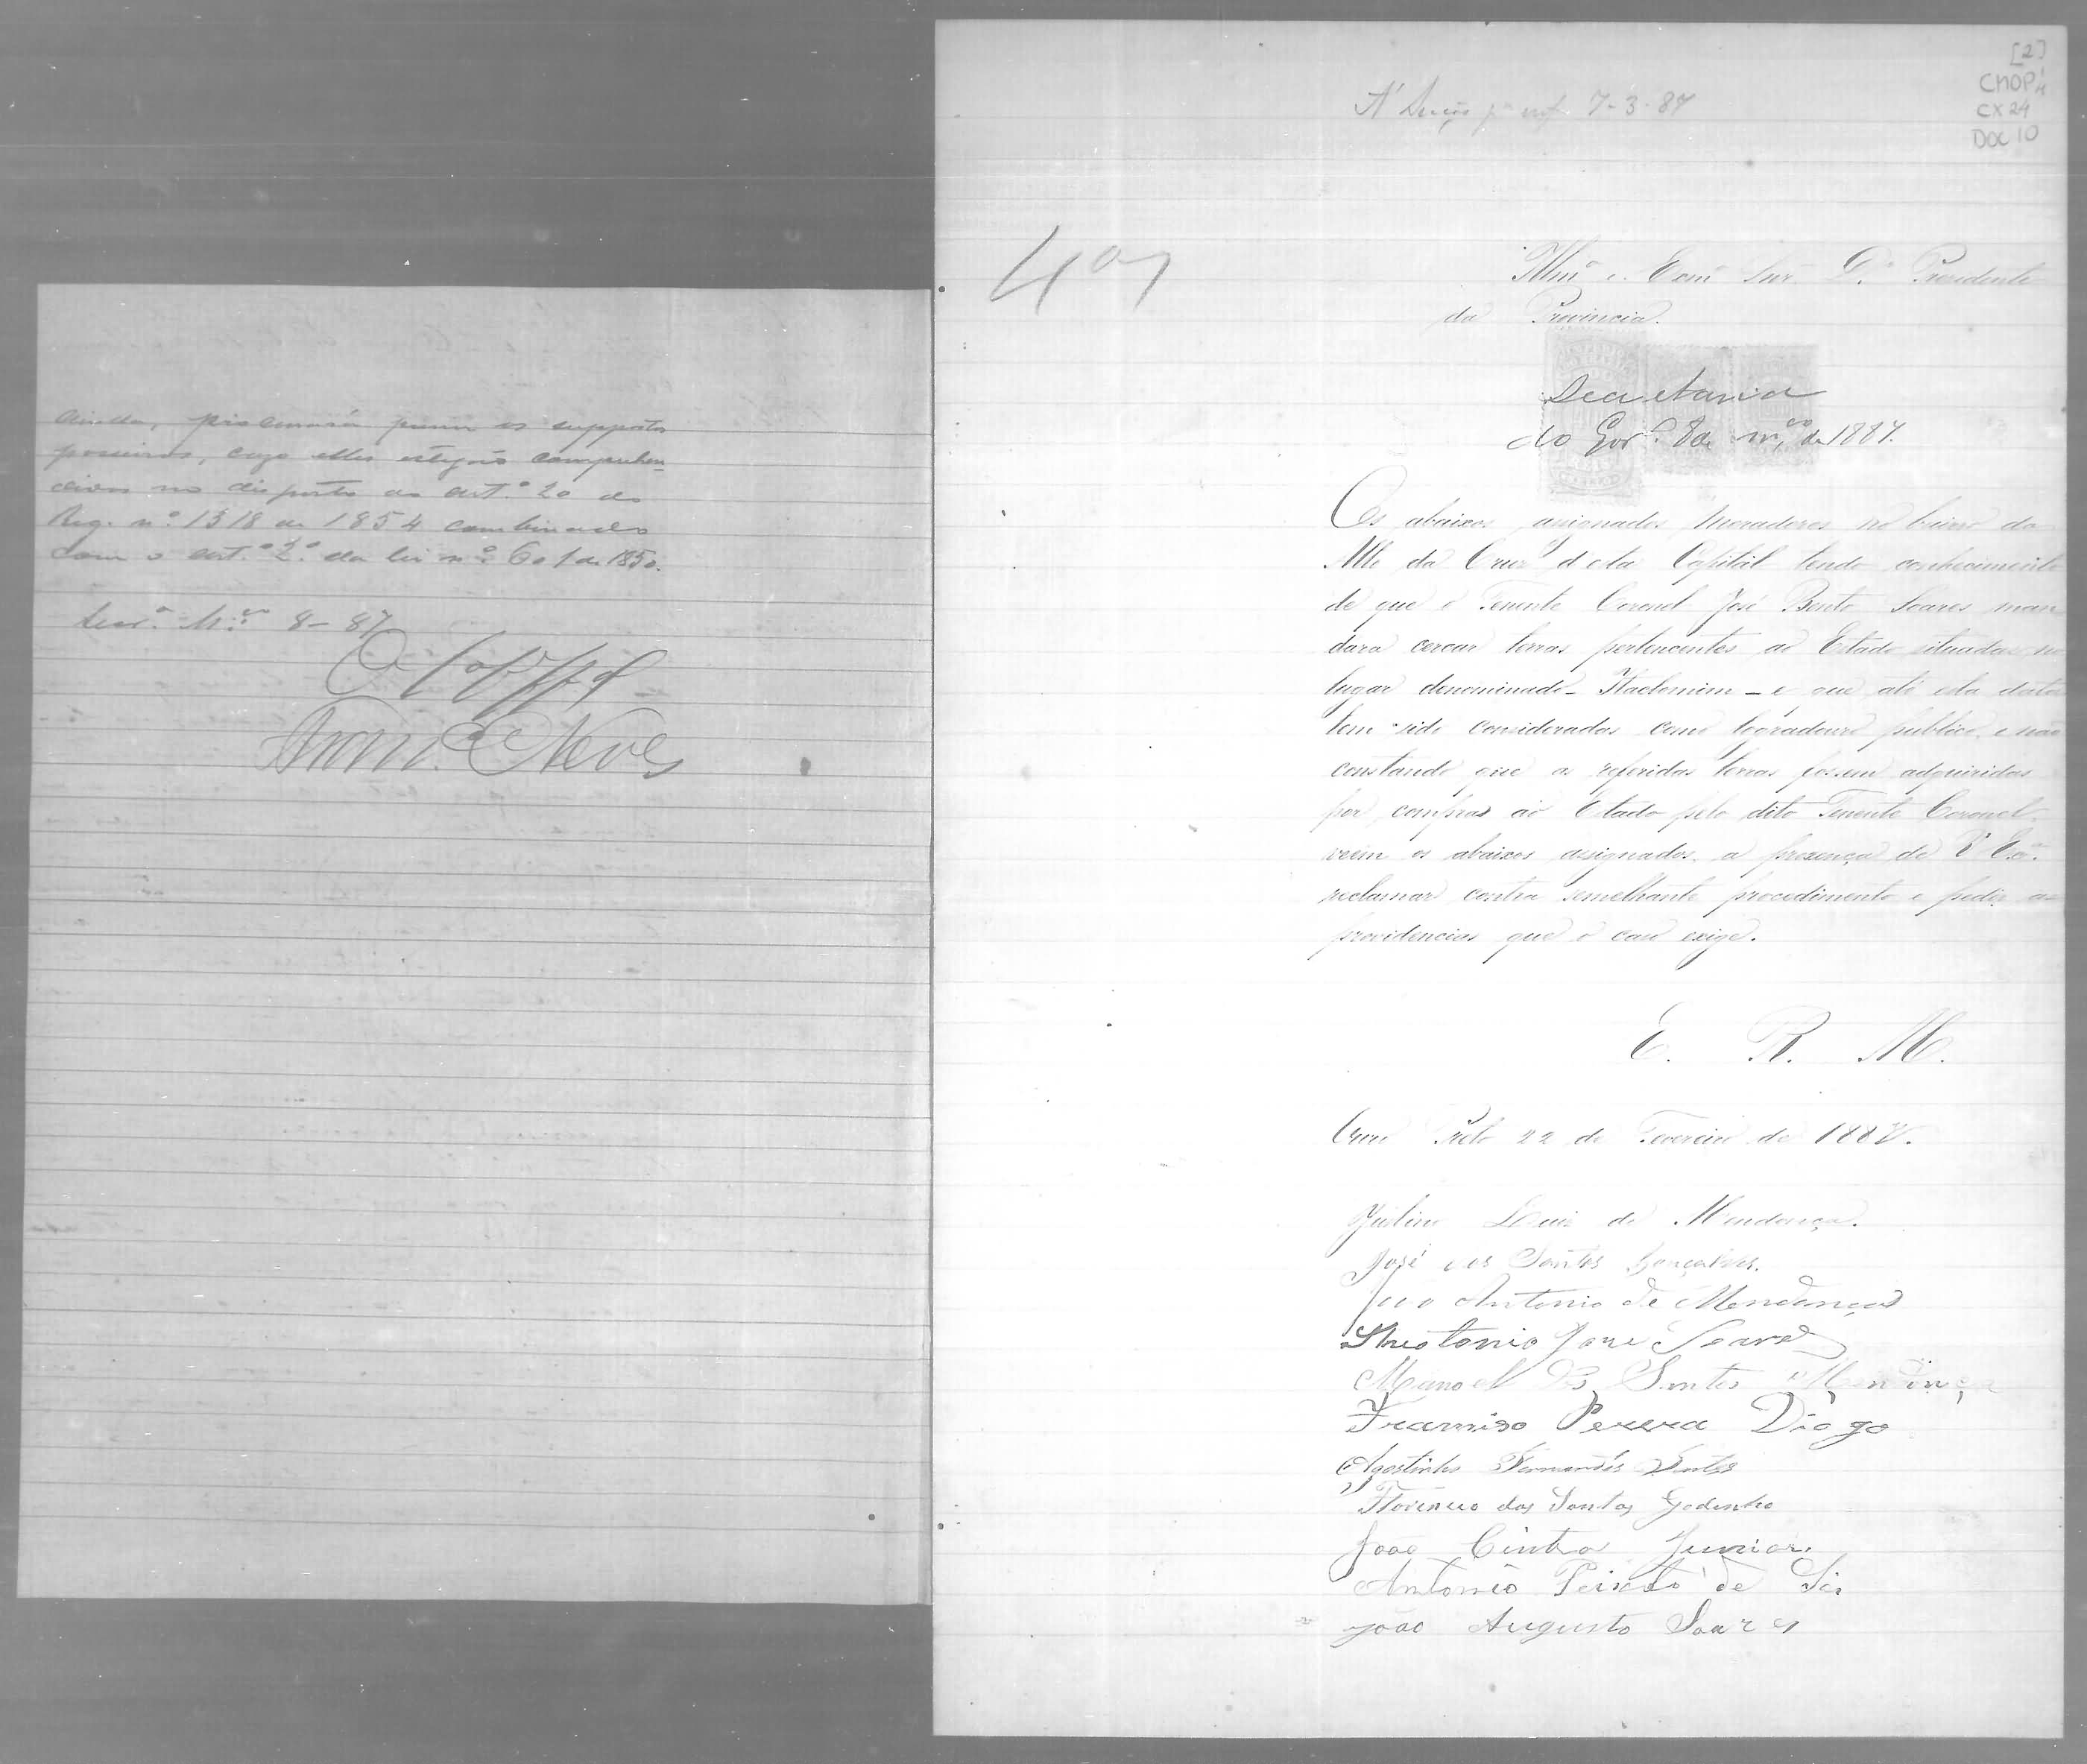 ainda, processará punir os suppostos
posseiros, cazo elles estejão comprehen-
didos no disposto do art.º 20 do
Reg. nº 1318 de 1854 combinado
com o art.º 2.º da lei nº 601 de 1850.
M.ço 8-87
Neves
[2]
CMOP
CX 24
DOC 10
A' Secção pª inf. 7-3-87
4ª
Illmº e Exmº Snr. Dr. Presidente
da Provincia.
Secretaria
do Govº. 8 de m.ço de 1887.
Os abaixo assignados moradores no bairro do
Alto da Cruz desta Capital tendo conhecimento
de que o Tenente Coronel José Bento Soares man
dara cercar terras pertencentes ao Estado situadas no
lugar denominado - - e que até esta data
tem sido consideradas como logradouro publico, e não
constando que as referidas terras fossem adquiridas
por compras ao Estado pelo dito Tenente Coronel,
veem os abaixos assignados, a presença de V. Exª.
reclamar contra semelhante procedimento e pedir as
providencias que o caso exige.
E. R. M.
Ouro Preto 22 de Fevereiro de 1887.
Luiz de Mendonça.
José dos Santos Gonçalves.
Antonio de Mendonça
Theotonio Jose Soares
Manoel dos Santos Mendonça
Francisco Perera Diogo
Agostinho Fernandes Santos
Florencio dos Santos Godinho
João Cintra Junior.
Antonio Peixoto de Sá
João Augusto Soares